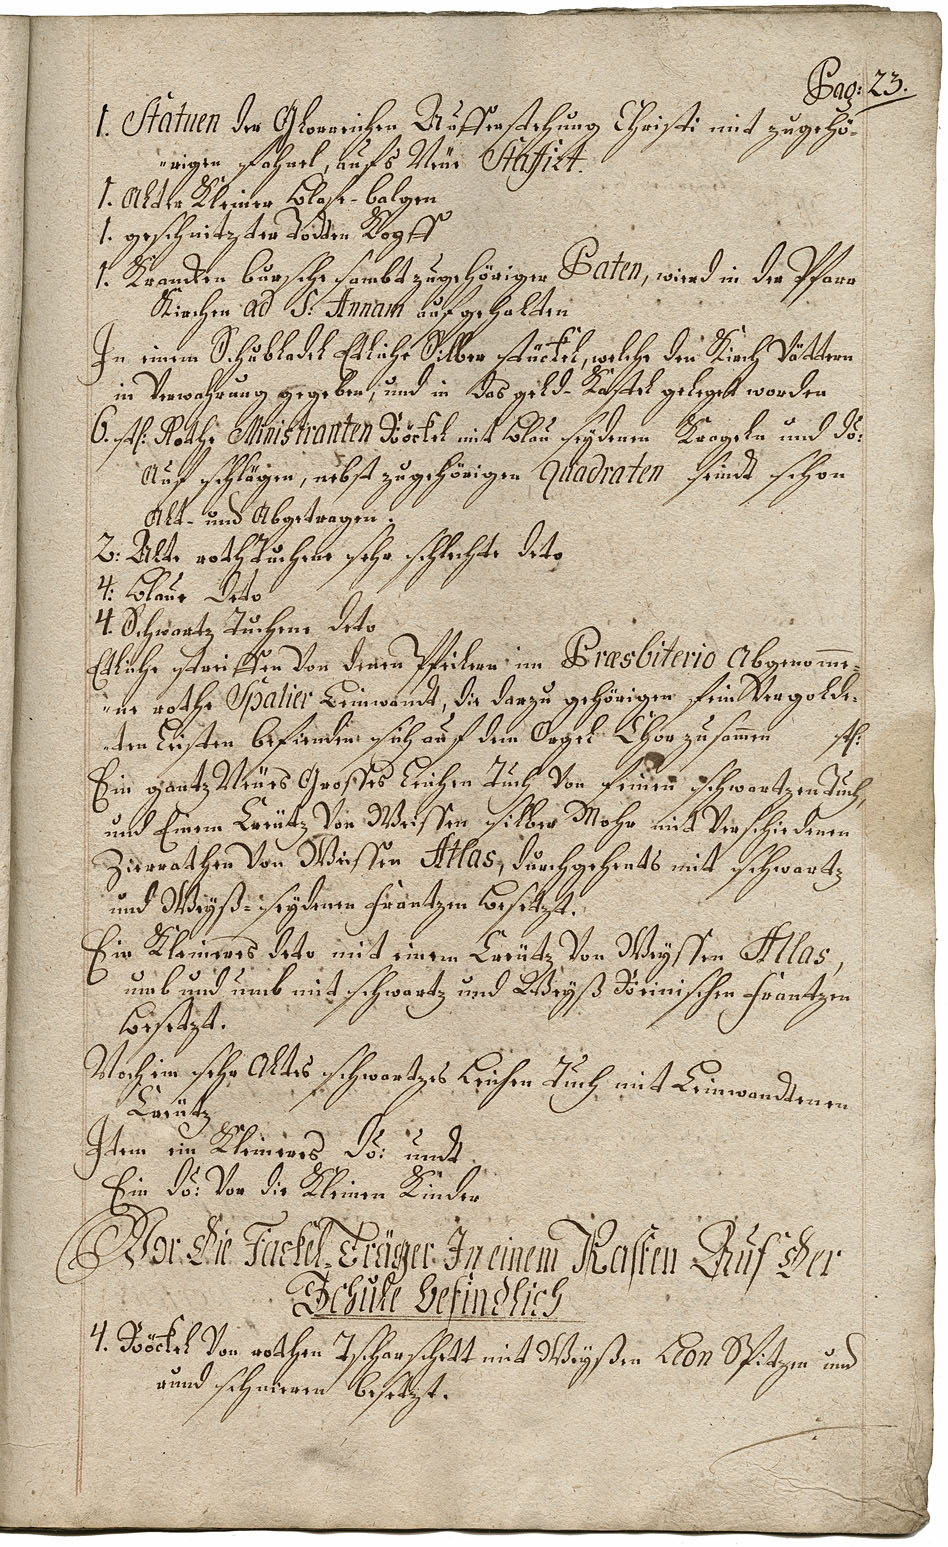 Pag: 23.
1. Statuen der Glorreichen Aufferstehung Christi mit zugehö-
rigen Fahnel, aufs Neue Staffirt.
1. Alter Kleiner Blase-balgen
1. geschnitzter Todten Kopff
1. Krancken bursche sambt zugehöriger Paten, wird in der Pfarr
Kirchen ad S: Annam aufgehalten
In einem Schubladel Etliche Silber stückel, welche den Kirch Vättern
in Verwahrung gegeben, und in das geld-Kastel geleget worden
6. st: Rothe Ministranten Röckel mit blau seydenen Krageln und do:
Auf schlägen, nebst zugehörigen Quadraten seind schon
Alt- und Abgetragen.
2: Alte roth Tuchene sehr schlechte deto
4: blaue deto
4. Schwartz Tuchene deto
Etliche streiffen von denen Pfeilern im Præsbiterio Abgenomme-
ne rothe Spalier Leinwandt, die darzu gehörigen fein Vergolde-
ten Leisten befinden sich auf dem Orgel Chor zusammen st:
Ein gantz Neües Grosses Leichen Tuch von feinen schwartzen Tuch,
und Einem Creütz Von Weissen silber Mohr mit Verschiedenen
Zierrathen Von Weissen Atlas, durchgehents mit schwartz
und Weyß-seydenen Frantzen besetzt.
Ein Kleineres deto mit einem Creütz Von Weyssen Atlas,
umb und umb mit schwartz und Weyß Dreinischen Frantzen
besetzt.
Noch ein sehr Altes schwartzes Leichen Tuch mit Leinwandtenen
Creütz
Item ein Kleineres do: undt
Ein do: Vor die Kleinen Kinder
Vor die Fackel-Träger In einem Kasten Auf der
Schule befindlich
4. Röckel Von rothen Tscharschett mit Weyßen Leon Spitzen und
rund schnieren besetzt.